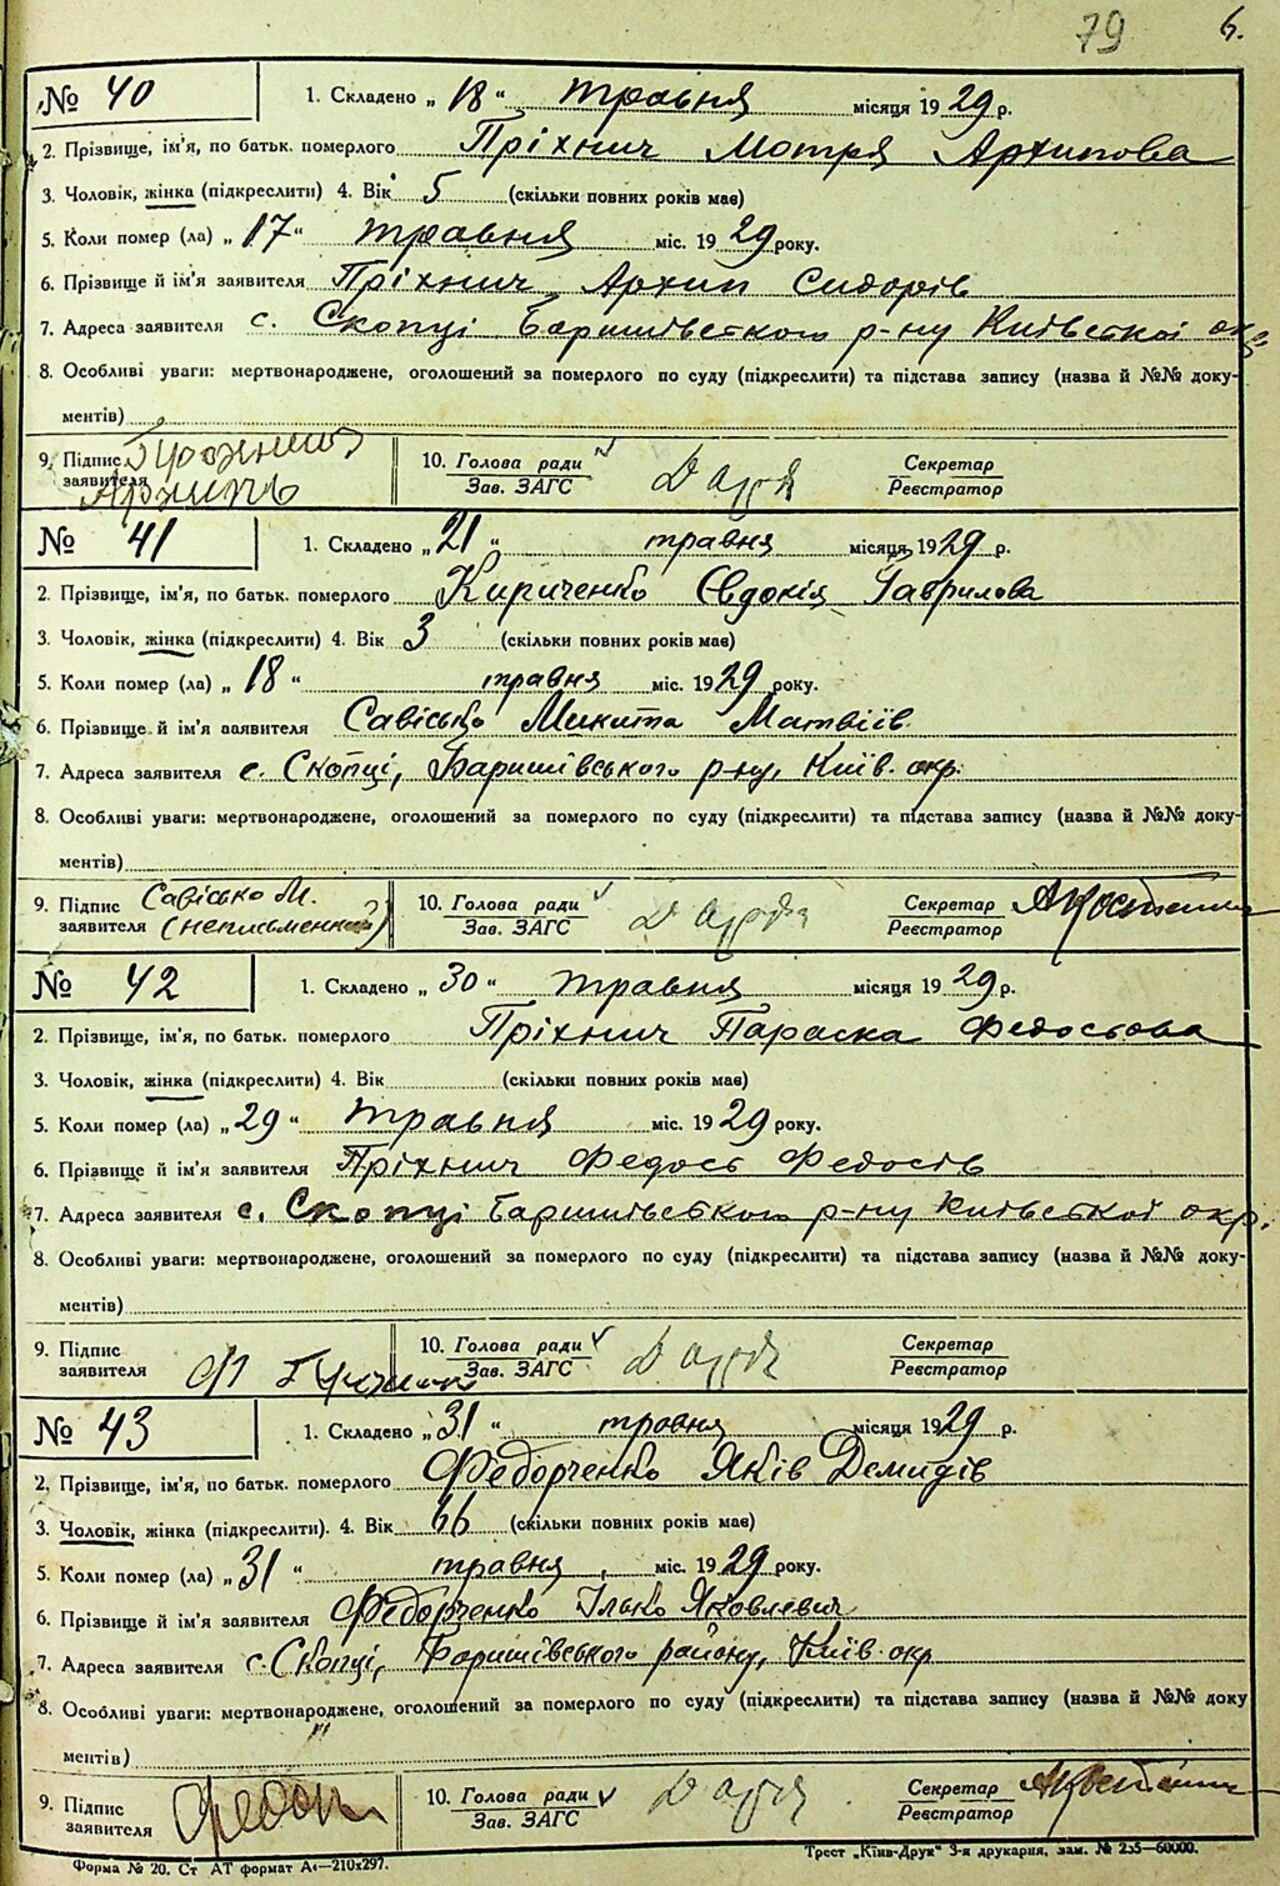 79 6.
№ 40 1. Складено „ 18 “ травня місяця 19 29 р.
2. Прізвище, ім'я, по батьк. померлого Пріхнич Мотря Архипова
3. Чоловік, жінка (підкреслити) 4. Вік 5 (скільки повних років має)
5. Коли помер (ла) „ 17 “ травня міс. 19 29 року.
6. Прізвище й ім'я заявителя Пріхнич Архип Сидорів
7. Адреса заявителя с. Скопці Баришівського р-ну Київської окр.
8. Особливі уваги: мертвонароджене, оголошений за померлого по суду (підкреслити) та підстава запису (назва й №№ доку-
ментів)
9. Підпис заявителя Архипъ 10. Голова ради Зав. ЗАГС Секретар Реєстратор
№ 41 1. Складено „ 21 “ травня місяця 19 29 р.
2. Прізвище, ім'я, по батьк. померлого Кириченко Євдокія Гаврилова
3. Чоловік, жінка (підкреслити) 4. Вік 3 (скільки повних років має)
5. Коли помер (ла) „ 18 “ травня міс. 19 29 року.
6. Прізвище й ім'я заявителя Савісько Микита Матвіїв
7. Адреса заявителя с. Скопці, Баришівського р-ну, Київ. окр.
8. Особливі уваги: мертвонароджене, оголошений за померлого по суду (підкреслити) та підстава запису (назва й №№ доку-
ментів)
9. Підпис заявителя Савісько М. (неписьменний) 10. Голова ради Зав. ЗАГС Секретар Реєстратор
№ 42 1. Складено „ 30 “ травня місяця 19 29 р.
2. Прізвище, ім'я, по батьк. померлого Пріхнич Параска Федосьова
3. Чоловік, жінка (підкреслити) 4. Вік (скільки повних років має)
5. Коли помер (ла) „ 29 “ травня міс. 19 29 року.
6. Прізвище й ім'я заявителя Пріхнич Федось Федосів
7. Адреса заявителя с. Скопці Баришівського р-ну Київської окр.
8. Особливі уваги: мертвонароджене, оголошений за померлого по суду (підкреслити) та підстава запису (назва й №№ доку-
ментів)
9. Підпис заявителя 10. Голова ради Зав. ЗАГС Секретар Реєстратор
№ 43 1. Складено „ 31 “ травня місяця 19 29 р.
2. Прізвище, ім'я, по батьк. померлого Федорченко Яків Демидів
3. Чоловік, жінка (підкреслити). 4. Вік 66 (скільки повних років має)
5. Коли помер (ла) „ 31 “ травня міс. 19 29 року.
6. Прізвище й ім'я заявителя Федорченко Ілько Яковлевич
7. Адреса заявителя с. Скопці, Баришівського району, Київ. окр
8. Особливі уваги: мертвонароджене, оголошений за померлого по суду (підкреслити) та підстава запису (назва й №№ доку
ментів)
9. Підпис заявителя 10. Голова ради Зав. ЗАГС Секретар Реєстратор
Форма № 20. Ст АТ формат А4—210x297. Трест „Київ-Друк“ 3-я друкарня, зам. № 255—60000.